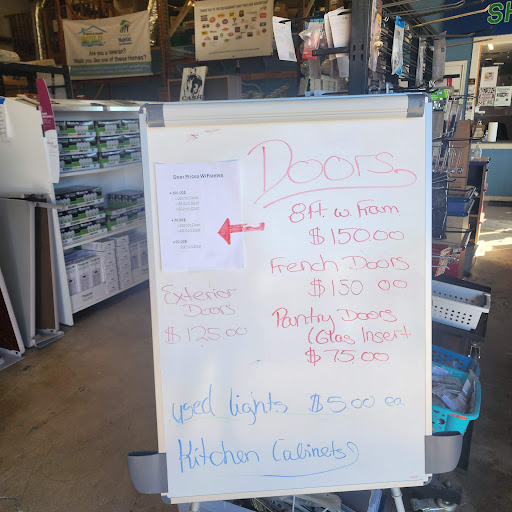 Are you a Veteran?
Would you like one of these Homes?
SH
Door Prices W/Frames
Doors
8ft. w. Fram
$150.00
French Doors
$150 00
Exterior
Doors
$125.00
Pantry Doors
(Glas Insert
$75.00
used lights $5.00 ea
Kitchen Cabinets